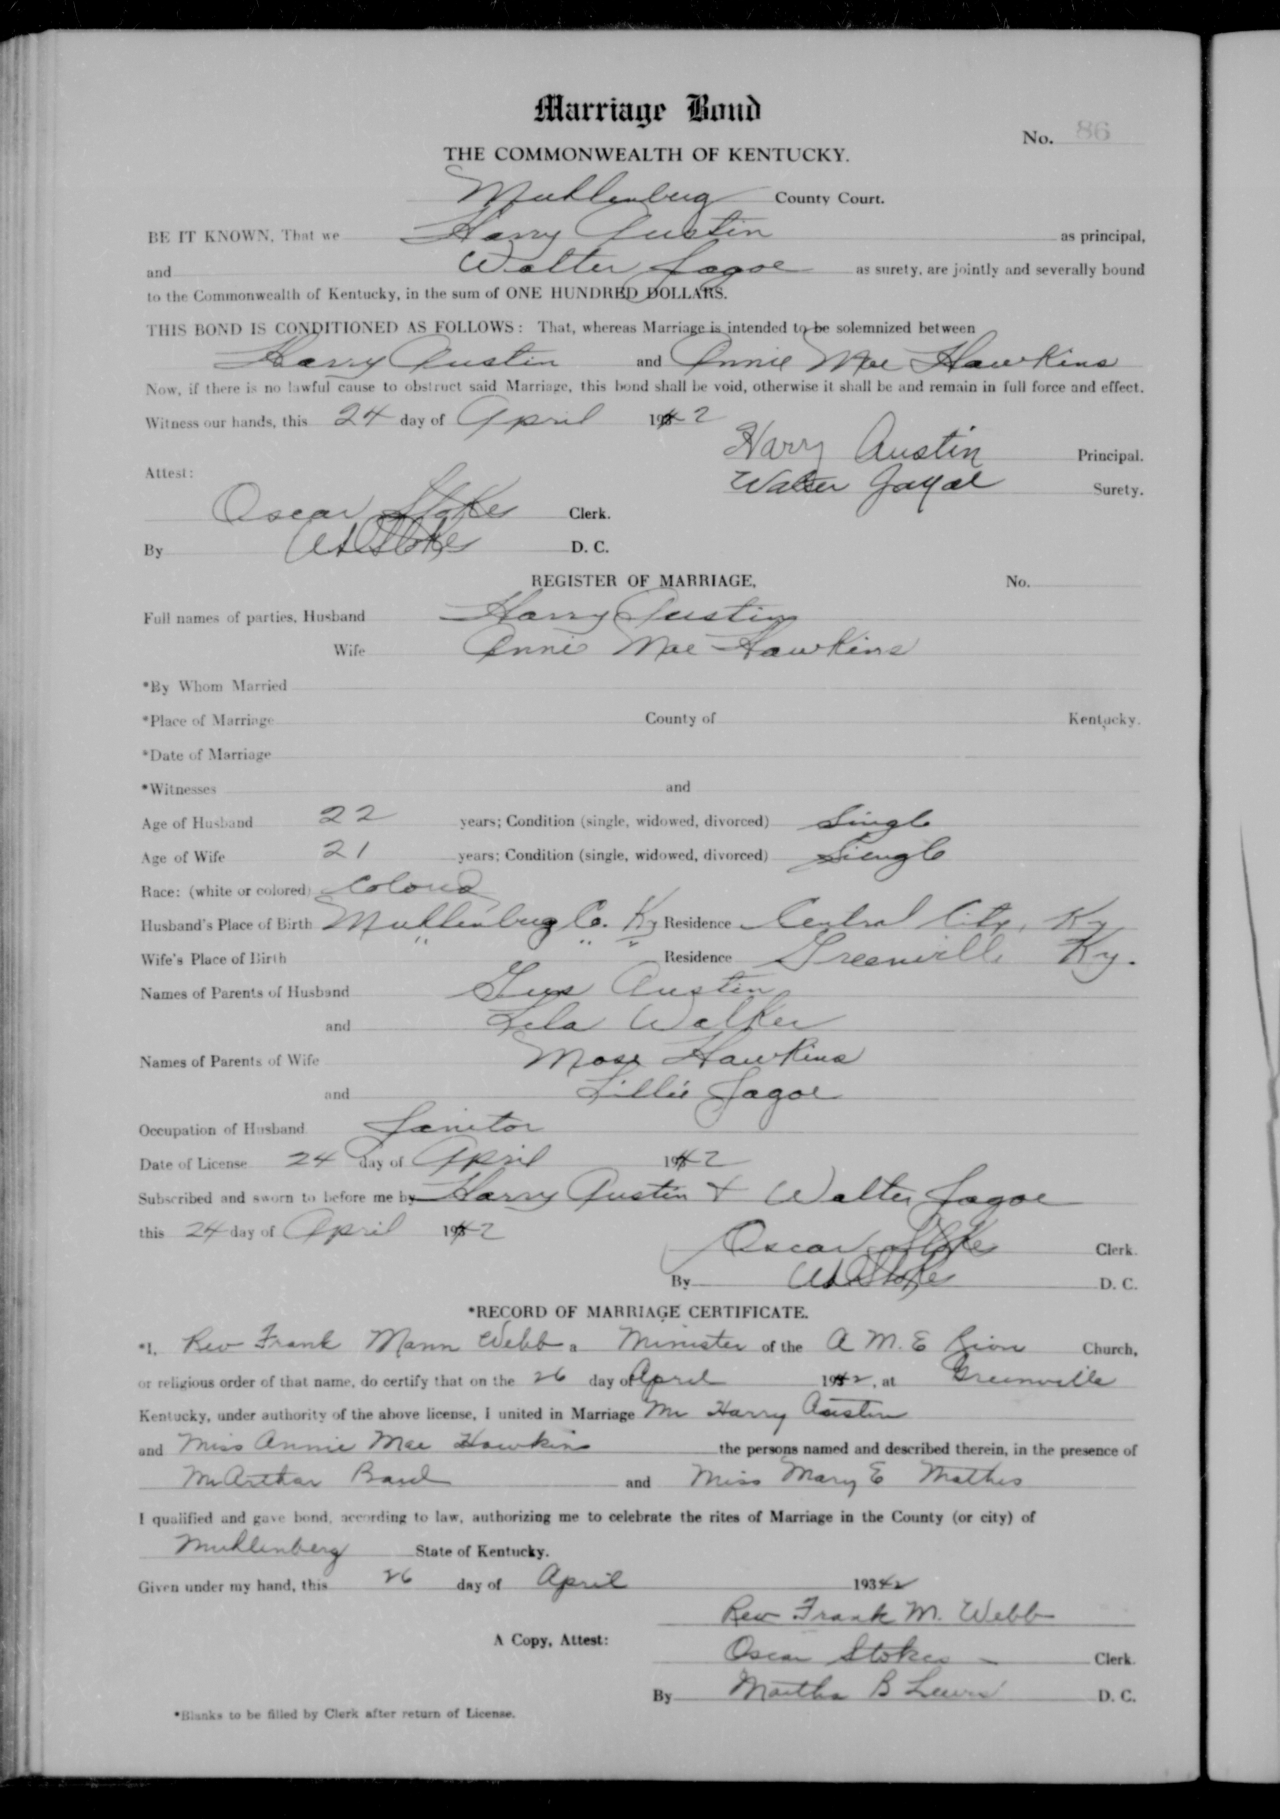 Marriage Bond
No. 86
THE COMMONWEALTH OF KENTUCKY.
Muhlenberg County Court.
BE IT KNOWN, That we Harry Austin as principal,
and Walter Jagoe as surety, are jointly and severally bound
to the Commonwealth of Kentucky, in the sum of ONE HUNDRED DOLLARS.
THIS BOND IS CONDITIONED AS FOLLOWS: That, whereas Marriage is intended to be solemnized between
Harry Austin and Annie Mae Hawkins
Now, if there is no lawful cause to obstruct said Marriage, this bond shall be void, otherwise it shall be and remain in full force and effect.
Witness our hands, this 24 day of April 1942
Harry Austin Principal.
Attest: Walter Jagoe Surety.
Oscar Stokes Clerk.
By Stokes D. C.
REGISTER OF MARRIAGE, No.
Full names of parties, Husband Harry Austin
Wife Annie Mae Hawkins
*By Whom Married
*Place of Marriage County of Kentucky.
*Date of Marriage
*Witnesses and
Age of Husband 22 years; Condition (single, widowed, divorced) Single
Age of Wife 21 years; Condition (single, widowed, divorced) Single
Race: (white or colored) Colored
Husband's Place of Birth Muhlenberg Co. Ky Residence Central City, Ky
Wife's Place of Birth " " " Residence Greenville Ky.
Names of Parents of Husband Gus Austin
and Lela Walker
Names of Parents of Wife Mose Hawkins
and Lillie Jagoe
Occupation of Husband Janitor
Date of License 24 day of April 1942
Subscribed and sworn to before me by Harry Austin + Walter Jagoe
this 24 day of April 1942
Oscar Stokes Clerk.
By Stokes D. C.
*RECORD OF MARRIAGE CERTIFICATE.
*I, Rev Frank Mann Webb a Minister of the A. M. E Zion Church,
or religious order of that name, do certify that on the 26 day of April 1942, at Greenville
Kentucky, under authority of the above license, I united in Marriage Mr Harry Austin
and Miss Annie Mae Hawkins the persons named and described therein, in the presence of
McArthar and Miss Mary E Mathis
I qualified and gave bond, according to law, authorizing me to celebrate the rites of Marriage in the County (or city) of
Muhlenberg State of Kentucky.
Given under my hand, this 26 day of April 193 42
Rev Frank M. Webb
A Copy, Attest: Oscar Stokes Clerk.
By Martha B Lewis D. C.
*Blanks to be filled by Clerk after return of License.